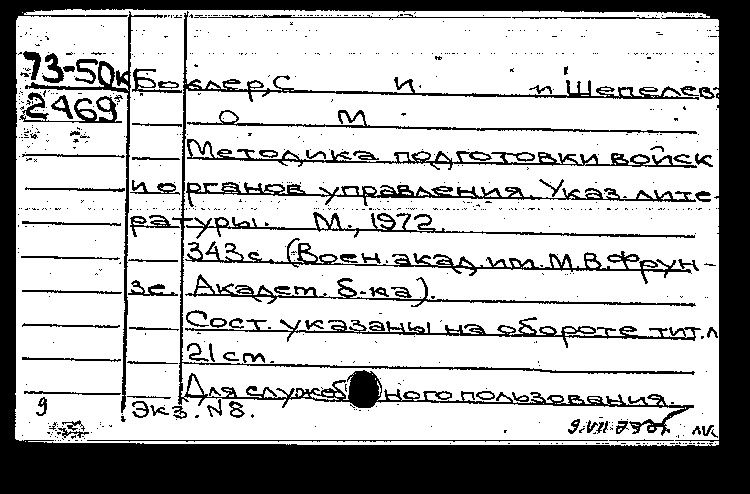 73-50к Боклер, С И. и Шепелева
2469 О М
Методика подготовки войск
и органов управления. Указ. лите-
ратуры. М., 1972.
343с. (Воен. акад. им. М.В. Фрун-
зе. Академ. б-ка).
Сост. указаны на обороте тит. л
21 cm.
Для служебного пользования.
9 Экз. N8.
9.VII